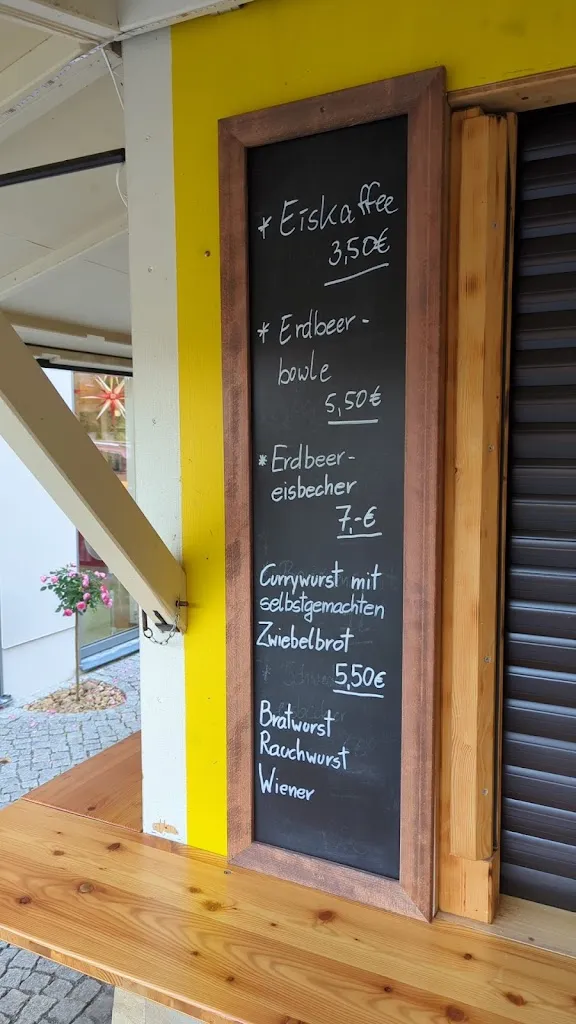 * Eiskaffee
3,50€
* Erdbeer-
bowle
5,50€
* Erdbeer-
eisbecher
7,-€
Currywurst mit
selbstgemachten
Zwiebelbrot
5,50€
Bratwurst
Rauchwurst
Wiener